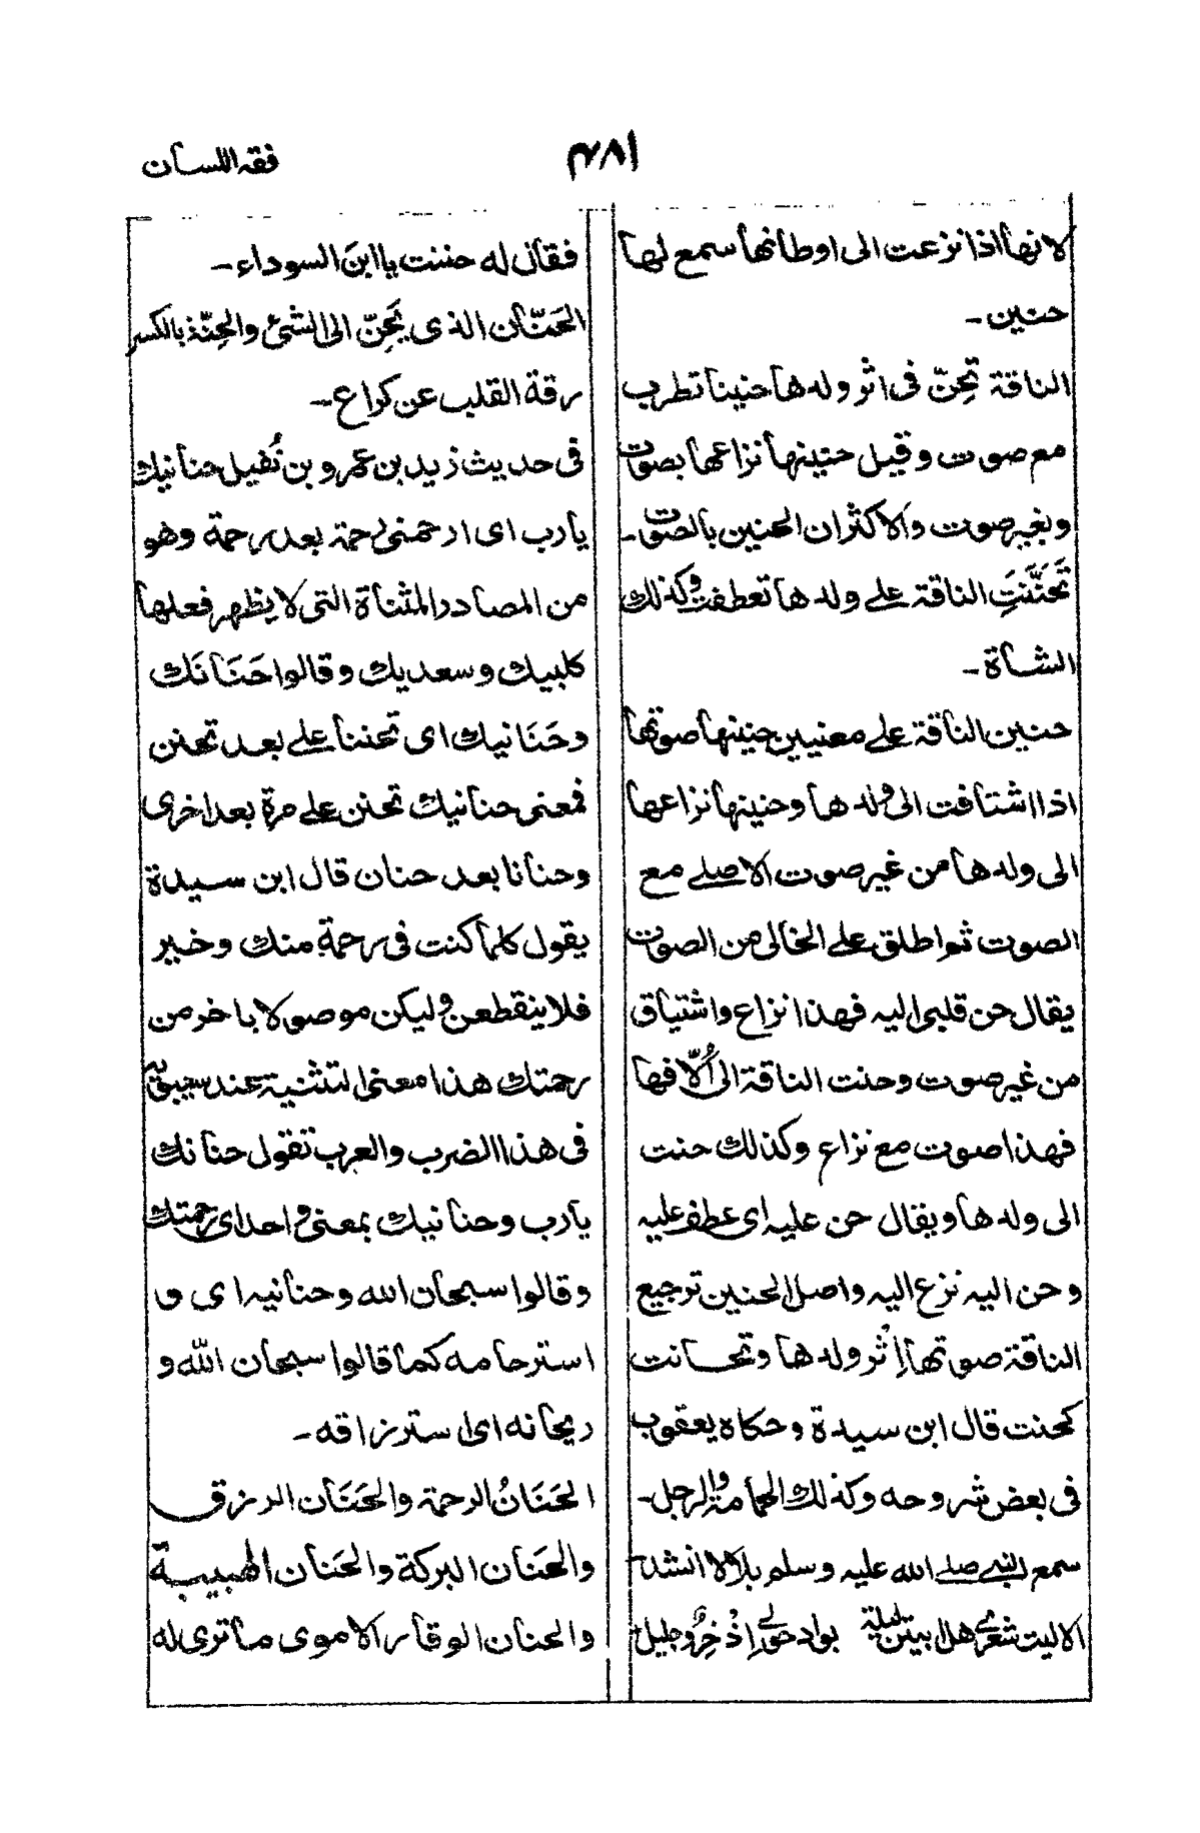 فقہ اللسان
٤٨١
لانها اذا نزعت الى اوطانها سمع لها
حنين ـ
الناقة تَحِنّ فى اثر ولدها حنينا تطرب
مع صوت وقيل حنينها نزاعها بصوت
وبغير صوت والاكثر ان الحنين بالصوت ـ
تَحَنَّنَتِ الناقة على ولدها تعطفت وكذلك
الشاة ـ
حنين الناقة على معنيين حنينها صوتها
اذا اشتاقت الى ولدها وحنينها نزاعها
الى ولدها من غير صوت الاصلے مع
الصوت ثم اطلق على الخالى من الصوت
يقال حن قلبى اليه فهذا نزاع واشتياق
من غير صوت وحنت الناقة الى اُلّافها
فهذا صوت مع نزاع وكذلك حنت
الى ولدها ويقال حن عليه اى عطف عليه
وحن اليه نزع اليه واصل الحنين ترجيع
الناقة صوتها اِثر ولدها وتحانت
كحنت قال ابن سيدة وحكاه يعقوب
فى بعض شروحه وكذلك الحمامة والرجل ـ
سمع النبى صلے الله عليه وسلم بلالا انشد
الا ليت شعرى هل ابيتن ليلة بواد حولى اِذْخِرٌ وجليل
فقال له حننت يا ابنَ السوداء ـ
الحَنّان الذى يَحِنّ الى الشئ والحِنّة بالكسر
رقة القلب عن كراع ـ
فى حديث زيد بن عمرو بن نُفيل حنانيك
يارب اى ارحمنى رحمة بعد رحمة وهو
من المصادر المثناة التى لا يظهر فعلها
كلبيك وسعديك وقالوا حَنَانَك
وحَنَانيك اى تحننا على بعد تحنن
فمعنى حنانيك تحنن على مرة بعد اخرى
وحنانا بعد حنان قال ابن سيدة
يقول كلما كنت فى رحمة منك وخير
فلا ينقطعن وليكن موصولا باخر من
رحمتك هذا معنى التثنية عند سيبويه
فى هذا الضرب والعرب تقول حنانك
يارب وحنانيك بمعنى واحد اى رحمتك
وقالوا سبحان الله وحنانيه اى و
استرحامه كما قالوا سبحان اللّٰه و
ريحانه اى استرزاقه ـ
الحَنَانُ الرحمة والحَنَان الرزق
والحَنان البركة والحَنان الهيبة
والحنان الوقار الاموى ما ترى له